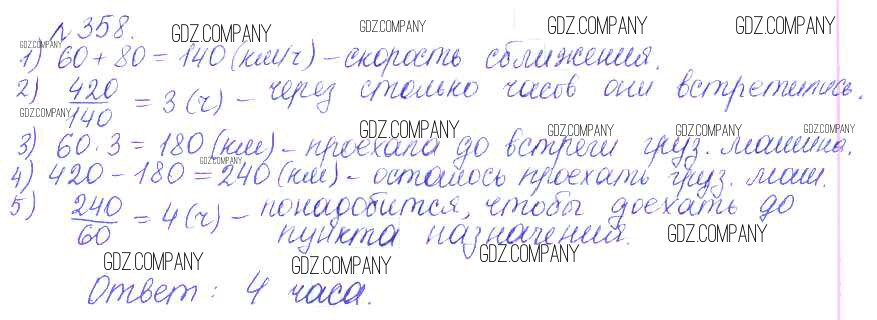 № 358. GDZ.COMPANY GDZ.COMPANY GDZ.COMPANY GDZ.COMPANY
GDZ.COMPANY
1) 60 + 80 = 140 (км/ч) – скорость сближения.
2) 420/140 = 3 (ч) – через столько часов они встретились.
GDZ.COMPANY GDZ.COMPANY GDZ.COMPANY GDZ.COMPANY GDZ.COMPANY
3) 60 · 3 = 180 (км) – проехала до встречи груз. машина.
GDZ.COMPANY
4) 420 – 180 = 240 (км) – осталось проехать груз. маш.
5) 240/60 = 4 (ч) – понадобится, чтобы доехать до
пункта назначения. GDZ.COMPANY
GDZ.COMPANY GDZ.COMPANY GDZ.COMPANY
Ответ: 4 часа.